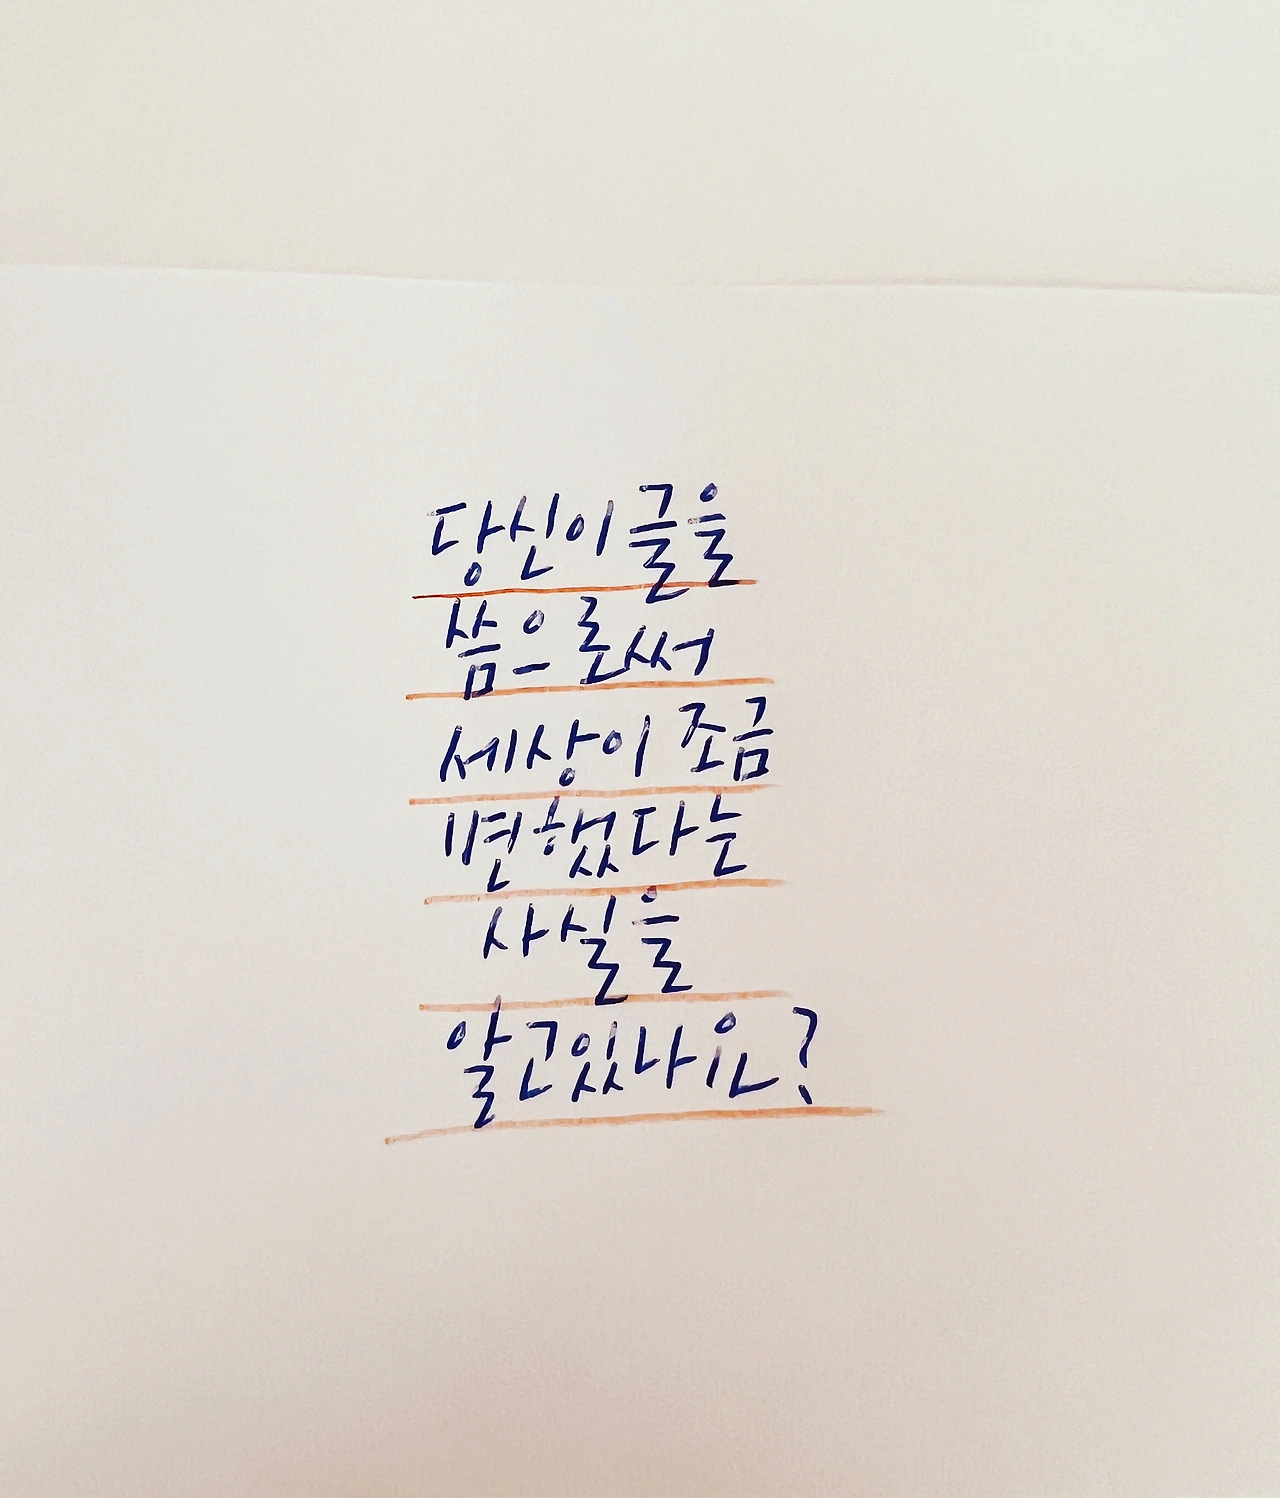 당신이 글을
씀으로써
세상이 조금
변했다는
사실을
알고있나요?